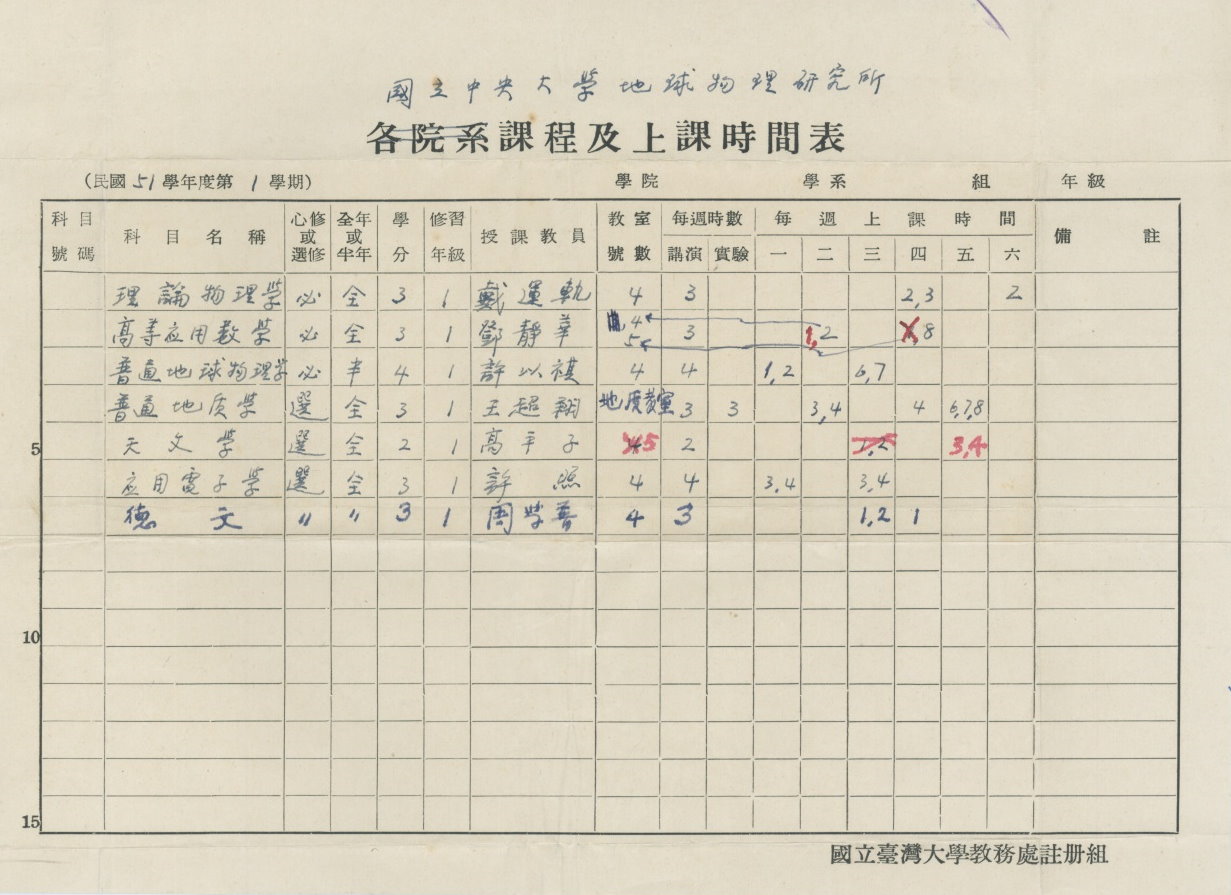 國立中央大學地球物理研究所
各院系課程及上課時間表
(民國51學年度第1學期) 學院 學系 組 年級
科目號碼 科目名稱 必修或選修 全年或半年 學分 修習年級 授課教員 教室號數 每週時數 講演 實驗 每週上課時間 一 二 三 四 五 六 備註
理論物理學 必 全 3 1 戴運軌 4 3 2,3 2
高等应用数学 必 全 3 1 鄧靜華 4 5 3 1,2 8
普通地球物理学 必 半 4 1 許以祺 4 4 1,2 6,7
普通地质学 選 全 3 1 王超翔 地质教室 3 3 3,4 4 6,7,8
5 天文學 選 全 2 1 高平子 5 2 1,2 3,4
应用電子學 選 全 3 1 許照 4 4 3,4 3,4
德文 〃 〃 3 1 周学普 4 3 1,2 1
10
15
國立臺灣大學教務處註册組